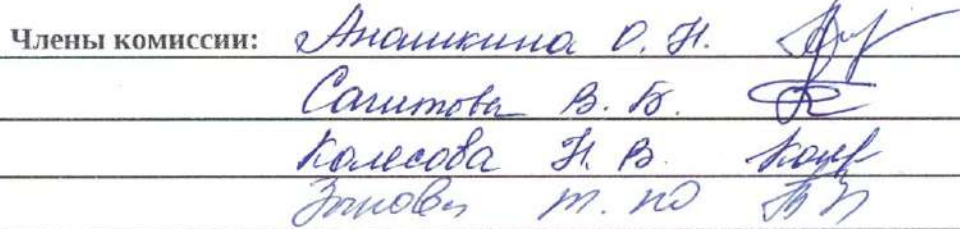 Члены комиссии: Анашкина О. Н.
Сагитова В. Б.
Колесова Н. В.
Т. Ю